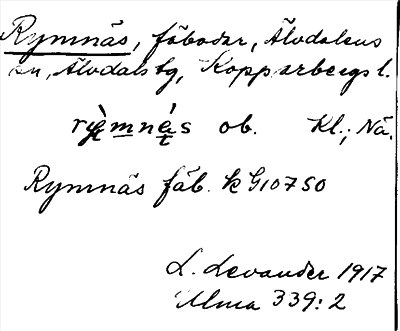 Rymnäs, fäbodar, Älvdalens
sn, Älvdals tg, Kopparbergs l.
ryèmnę́s ob. Kl.; Nä.
Rymnäs fäb. k G10750
L. Levander 1917
Ulma 339:2